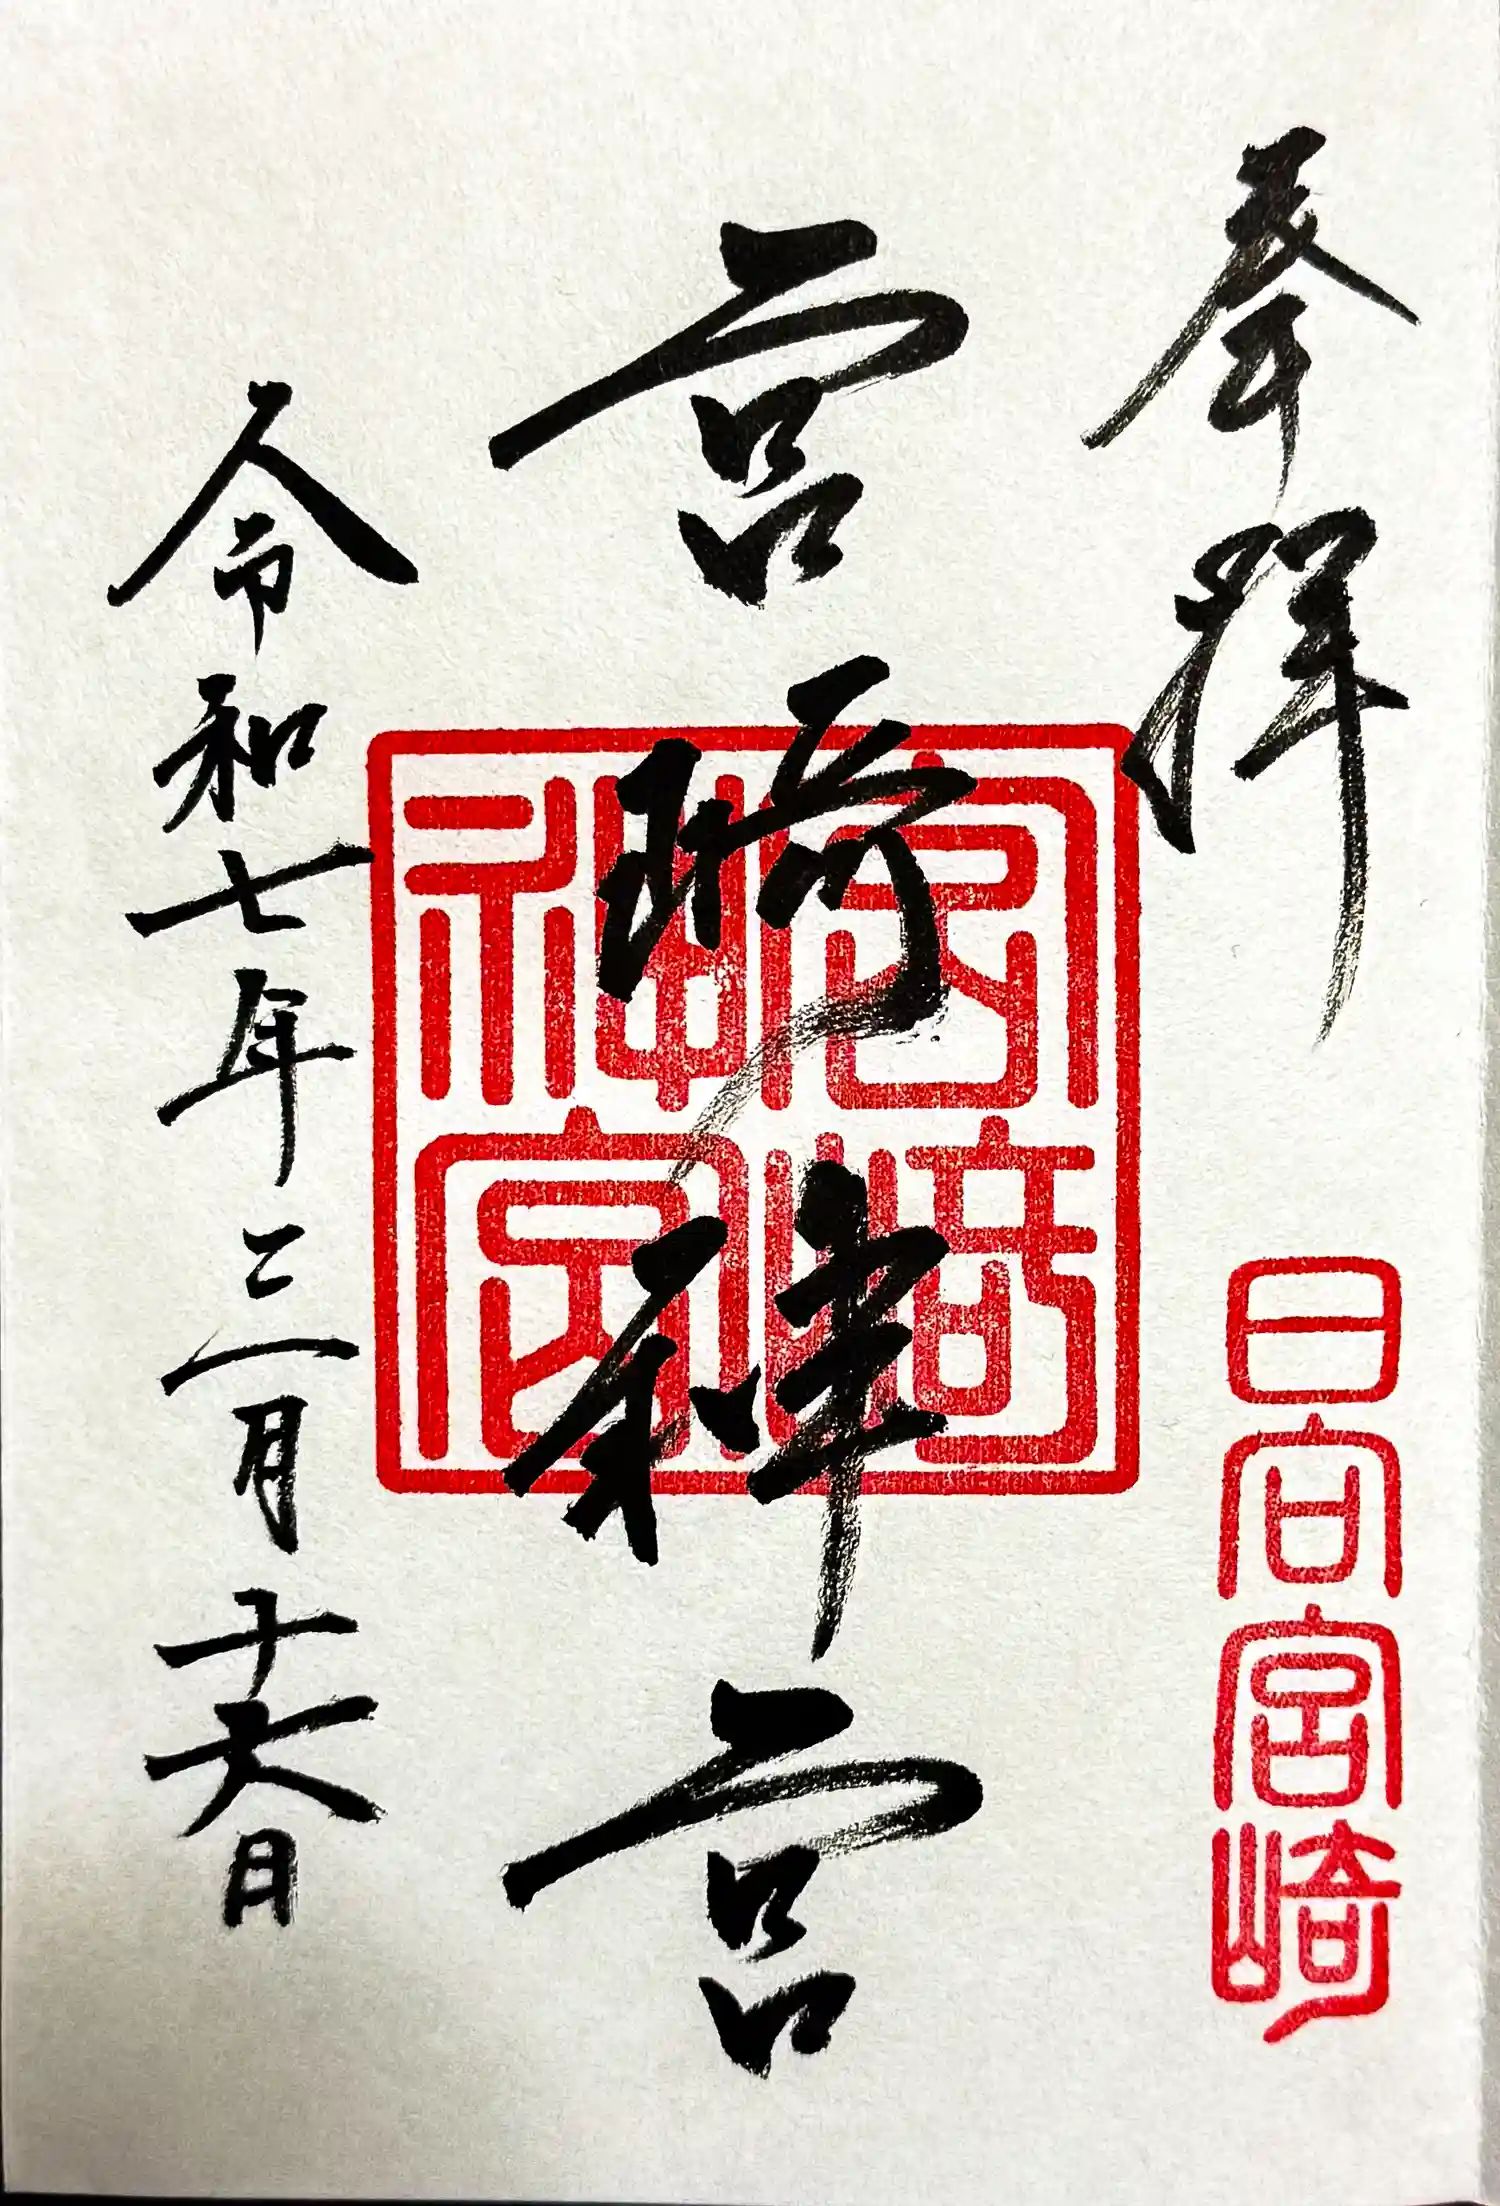 奉拝
日向宮崎
宮崎神宮
宮崎神宮
令和七年三月十六日